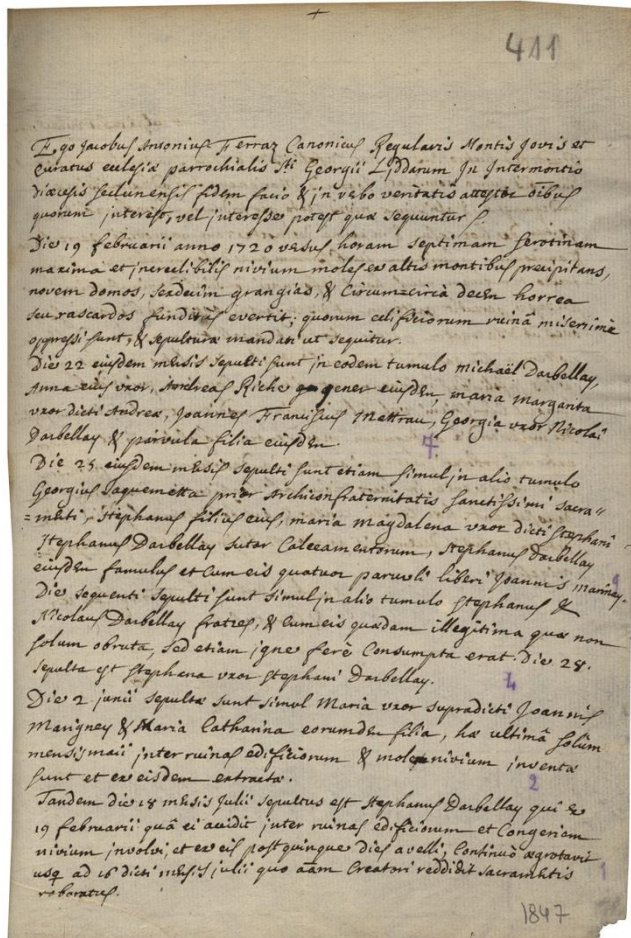 +
411
Ego Jacobus Antonius Ferraz Canonicus Regularis Montis Jovis et
Curatus eclesiæ parrochialis Sti Georgii Lyddarum Jn Intermontio
diœcesis sedunensis fidem facio & jn verbo veritatis attestor oibus
quorum interest, vel interesse potest quæ sequuntur
Die 19 februarii anno 1720 versus horam septimam serotinam
maxima et jncredibilis nivium moles ex altis montibus precipitans,
novem domos, sexdecim grangias, & Circumcirca decem horrea
seu rascardos funditus evertit; quorum edificiorum ruinâ miserrimè
oppressi sunt, & sepulturæ mandati ut sequitur.
Die 22 ejusdem mensis sepulti sunt jn eodem tumulo michaël Darbellay,
Anna ejus uxor, Andreas Riche gener ejusdem, maria Margarita
uxor dicti Andreæ, Joannes Franciscus Mettrau, Georgia uxor Nicolai
Darbellay & parvula filia ejusdem.
7
Die 25 ejusdem mensis sepulti sunt etiam simul jn alio tumulo
Georgius Jaquemetta prior Archiconfraternitatis sanctissimi sacra=
=menti, Stephanus filius ejus, maria Magdalena uxor dicti Stephani
Stephanus Darbellay sutor Calceamentorum, Stephanus Darbellay
ejusdem famulus et Cum eis quatuor parvuli liberi Joannis Marigney.
9
Die sequenti sepulti sunt simul jn alio tumulo Stephanus &
Nicolaus Darbellay fratres, & Cum eis quædam illegitima quæ non
solum obruta, sed etiam jgne ferè Consumpta erat. Die 28.
sepulta est Stephana uxor Stephani Darbellay.
4
Die 2 junii sepultæ sunt simul Maria uxor supradicti Joannis
Marigney & Maria Catharina eorumdem filia, hæ ultimâ solùm
mensis maii jnter ruinas edificiorum & molem nivium inventæ
sunt et ex eisdem extractæ.
2
Tandem die 18 mensis Julii sepultus est Stephanus Darbellay qui ex
19 februarii quâ ei accidit jnter ruinas edificiorum et Congeriem
nivium jnvolvi, et ex eis post quinque dies avelli, Continuò ægrotavit
usq ad 16 dicti mensis julii quo aãm Creatori reddidit sacramentis
roboratus.
1
1847